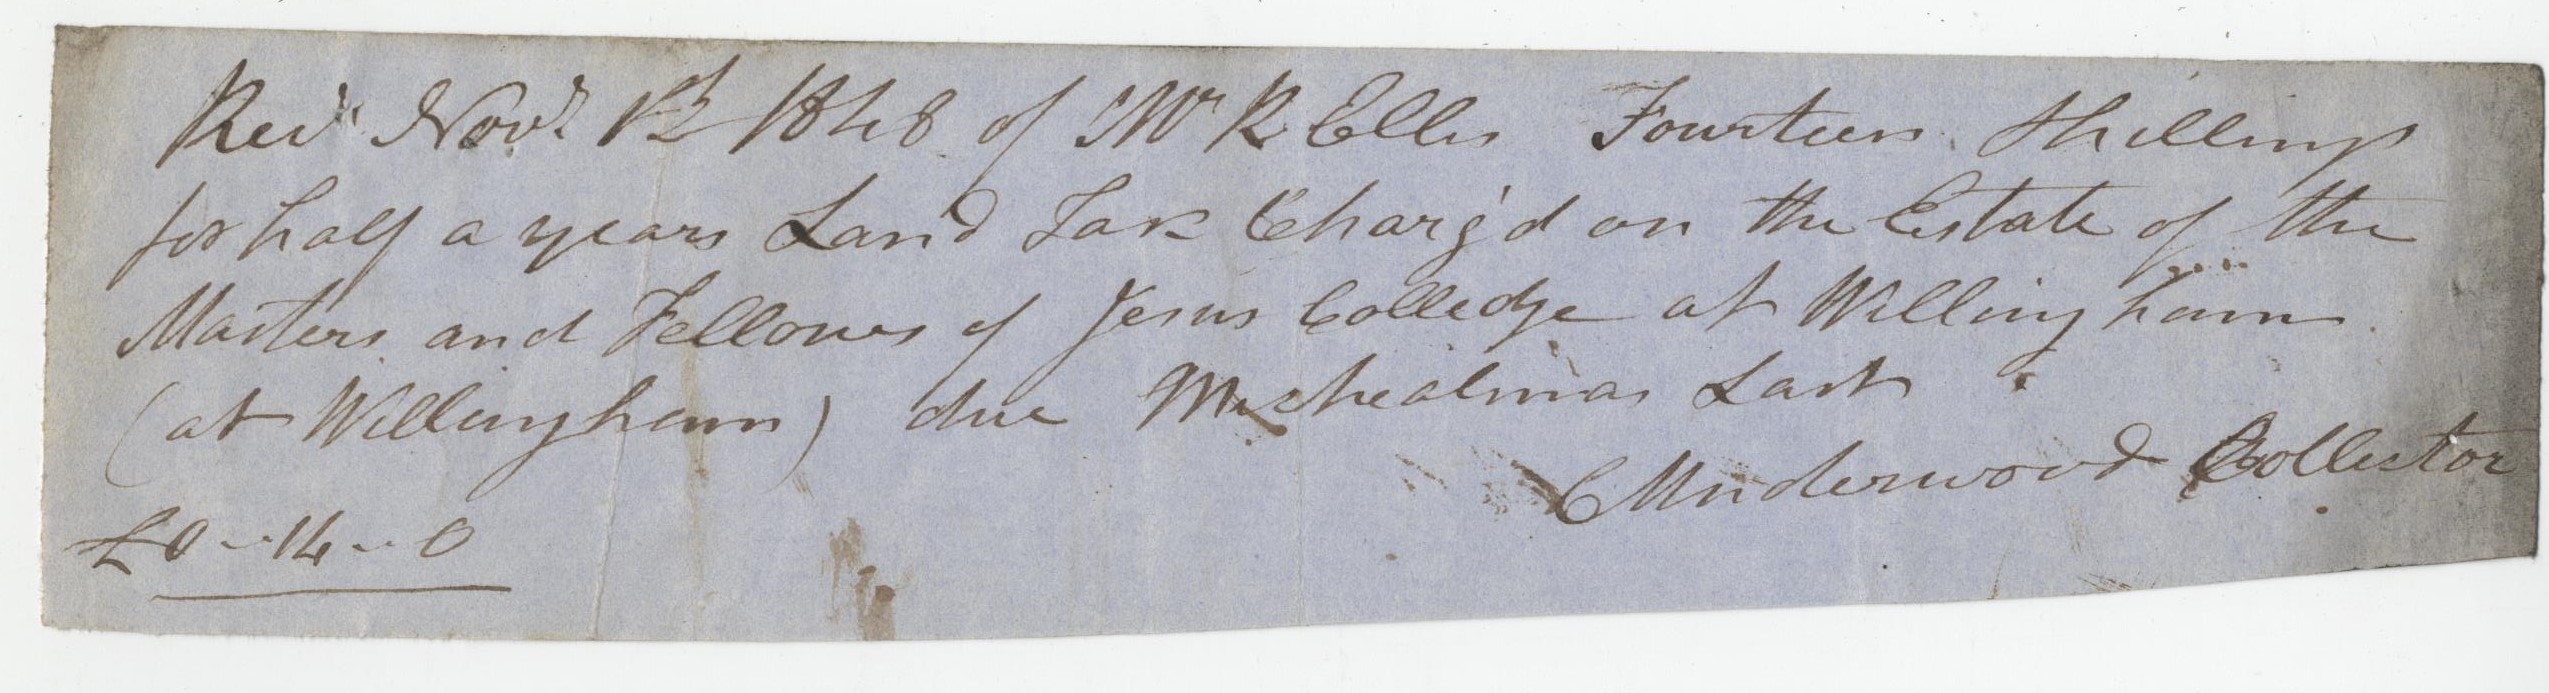 Recd Novr 1st 1848 of Mr R Ellis Fourteen Shillings
for half a years Land Tax Charg'd on the Estate of the
Masters and Fellows of Jesus Colledge at Willingham
(at Willingham) due Michealmas Last
C Underwood Collector
£0 - 14 - 0